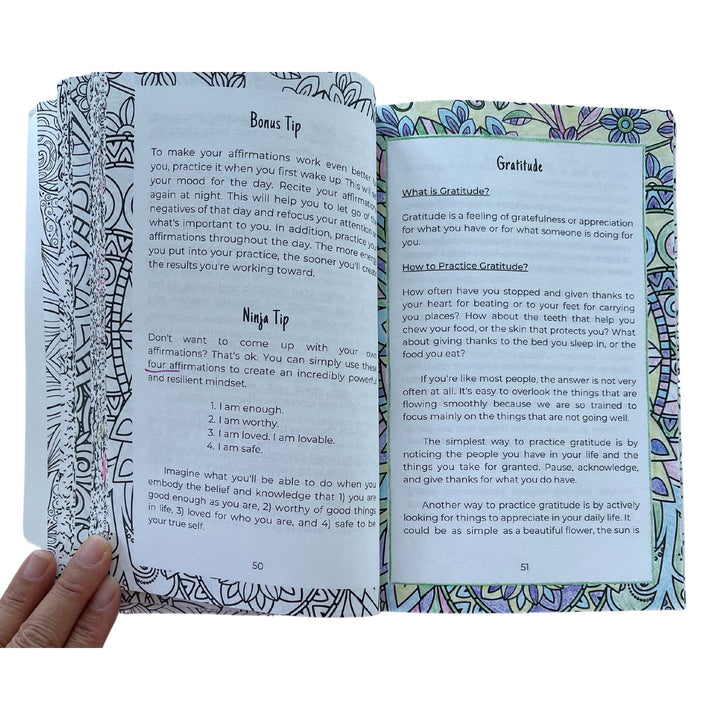 Bonus Tip
To make your affirmations work even better for
you, practice it when you first wake up. This will set
your mood for the day. Recite your affirmations
again at night. This will help you to let go of the
negatives of that day and refocus your attention on
what's important to you. In addition, practice your
affirmations throughout the day. The more energy
you put into your practice, the sooner you'll create
the results you're working toward.
Ninja Tip
Don't want to come up with your own
affirmations? That's ok. You can simply use these
four affirmations to create an incredibly powerful
and resilient mindset.
1. I am enough.
2. I am worthy.
3. I am loved. I am lovable.
4. I am safe.
Imagine what you'll be able to do when you
embody the belief and knowledge that 1) you are
good enough as you are, 2) worthy of good things
in life, 3) loved for who you are, and 4) safe to be
your true self.
50
Gratitude
What is Gratitude?
Gratitude is a feeling of gratefulness or appreciation
for what you have or for what someone is doing for
you.
How to Practice Gratitude?
How often have you stopped and given thanks to
your heart for beating or to your feet for carrying
you places? How about the teeth that help you
chew your food, or the skin that protects you? What
about giving thanks to the bed you sleep in, or the
food you eat?
If you're like most people, the answer is not very
often at all. It's easy to overlook the things that are
flowing smoothly because we are so trained to
focus mainly on the things that are not going well.
The simplest way to practice gratitude is by
noticing the people you have in your life and the
things you take for granted. Pause, acknowledge,
and give thanks for what you do have.
Another way to practice gratitude is by actively
looking for things to appreciate in your daily life. It
could be as simple as a beautiful flower, the sun is
51